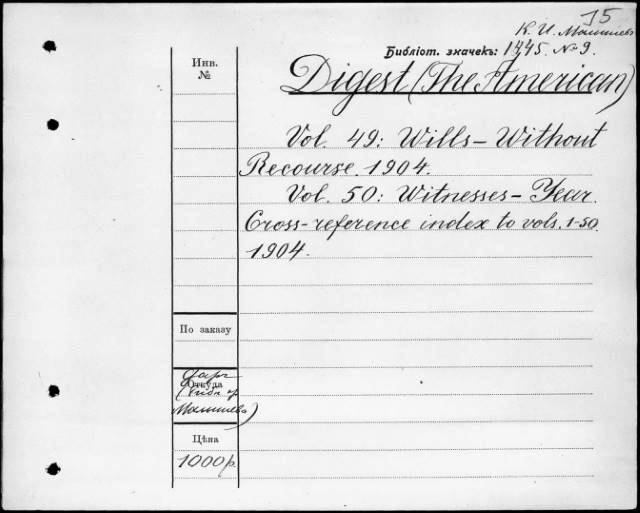 15
К. И. Малышев
Библіот. значекъ: 1445. № 9.
Инв.
№
Digest (The American)
Vol. 49: Wills – Without
Recourse. 1904.
Vol. 50: Witnesses – Year.
Cross-reference index to vols. 1-50
1904.
По заказу
Откуда
Малышева)
Цѣна
1000 р.